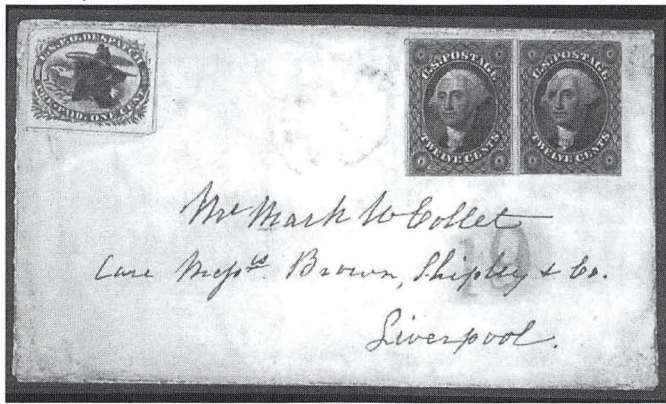 U.S.P.O. DESPATCH
PRE-PAID. ONE CENT
U.S. POSTAGE
TWELVE CENTS
U.S. POSTAGE
TWELVE CENTS
Mr Mark W Collet
Care Messrs Brown, Shipley & Co.
Liverpool.
19